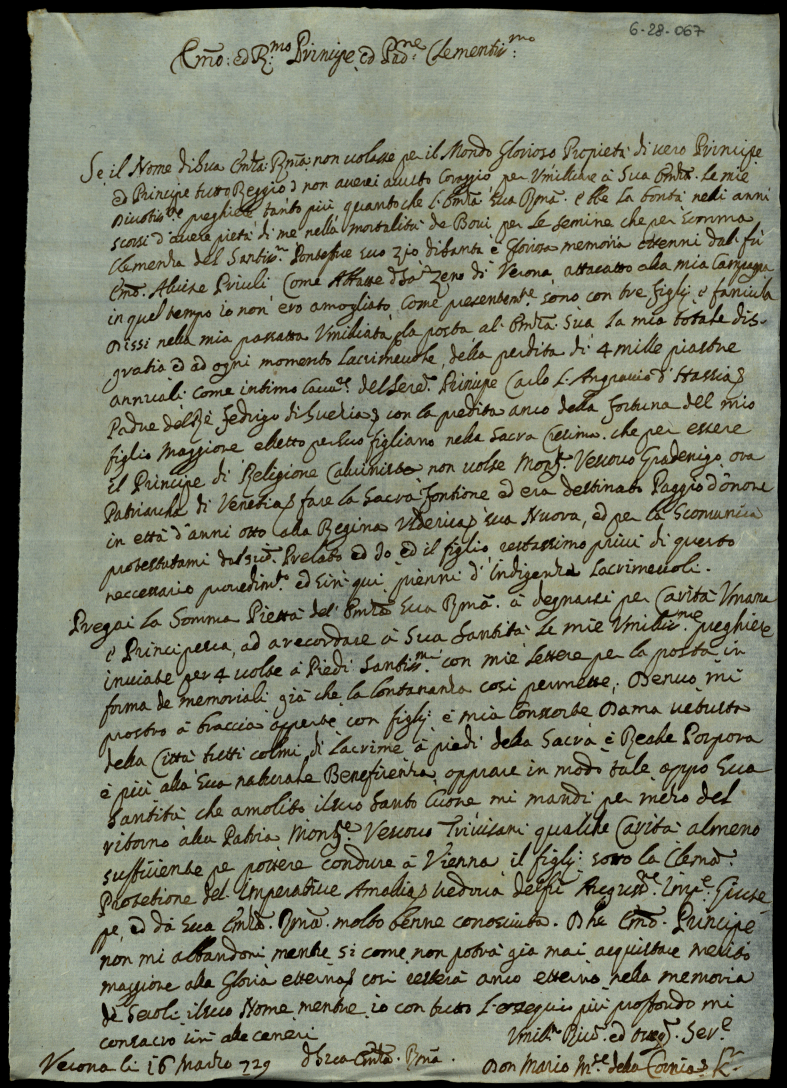 6-28-067
Emo: ed R:mo Principe ed Pad:ne Clementis:mo
Se il Nome di Sua Emza: Rma: non volasse per il Mondo Glorioso Propietà di vero Principe
ed Principe tutto Reggio non averei avuto Coraggio per Umiliare à Sua Emza: Le mie
preghiere tanto più quanto che L'Emza: Sua Rma: ebbe La bontà neli anni
scorsi d'avere pietà di me nella mortalità de Bovi per Le semine che per summa
Clemenza del Santiss:mo Pontefice suo Zio di Santa è Gloriosa memoria ottenni dal fù
Emo: Aluise Priuli Come Abbatte di Sa: Zeno di Verona, attacatto alla mia Campagna
in quel tempo io non ero amogliato, Come presentemte: sono con tre figlj: e faniula
Dissi nella mia passatta Umiliata p la posta al: Emza: Sua La mia totale dis-
gratia ed ad ogni momento Lacrimevole, della perdita di 4 mille piastre
annuali come intimo del Sere: Principe Carlo L'Angravio d'Hassia
Padre del Rè Fedrigo di Suezia con la predita anco della fortuna del mio
figlio Maggiore eletto per suo figliano nella Sacra Cresima, che per essere
il Principe di Religione Calvinista non volse Mons:r Vescovo Gradenigo ora
Patriarcha di Venetia fare La Sacra fontione ed era destinato Paggio d'onore
in ettà d'anni otto alla Regina Ulderica sua Nuora, ed per La Scomunica
protestatami dal sud: Prelato ed Io ed il figlio restassimo privi di questo
neccessario provedimto: ed sin qui pienni d'indigenza Lacrimevoli.
Pregai La Somma Pietta del: Emza: Sua Rma: à degnarsi per Carità Umana
e Principesca, ad arecordare à Sua Santità Le mie Umiliss:me preghiere
inviate per 4 volte à Piedi Santiss:mi con mie Lettere per La posta in
forma de memoriali già che La Lontananza così permette, Denuo mi
prostro à braccia apperte con figlj: è mia Consorte Dama vebusta
della Città tutti colmi di Lacrime à piedi della Sacra è Reale Porpora
è più alla Sua naturale Beneficenza, opprare in modo tale appo Sua
Santità che amolito il suo Santo Cuore mi mandi per mezo del
ritorno alla Patria Mons:e Vescovo Trivisani qualche Carità almeno
sufficiente pe pottere condure à Vienna il figlj: sotto la Clema:
Protetione del: Imperatrice Amalia vedova del fù August:e Imp:e Giuse
pe, ed da Sua Emza: Rma: molto benne conosciuta. Dhe Emo: Principe
non mi abbandoni mentre si come non potrà già mai acquistare merito
maggiore alla Gloria etterna così resterà anco etterno nella memoria
de Secoli il suo Nome, mentre io con tutto L'ossequio più proffondo mi
consacro sin alle ceneri
Umil:o Div:o ed Obbg:o Ser:e
Verona li 16 Marzo 729 di Sua Emza: Rma: Don Mario M:se della Cornia